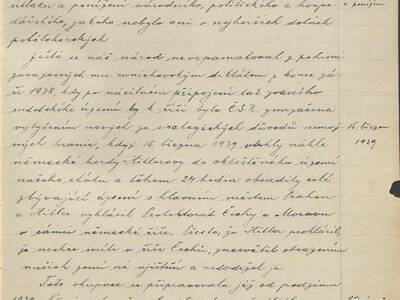 útlaku a ponížení národního, politického a hospo- a ponížení
dářského, jakého nebylo ani v nejhorších dobách
pobělohorských
Ještě se náš národ nevzpamatoval z pohrom
způsobených mu mnichovským diktátem z konce zá-
ří 1938, kdy po násilném připojení tak zvaného
sudetského území k říši byla Č.S.R. zmrzačena
vytyčením nových ze strategických důvodů nemož-
ných hranic, když 15. března 1939 vtrhly náhle 15. březen
německé hordy Hitlerovy do okleštěného území 1939
našeho státu a během 24 hodin obsadily celé
zbývající území s hlavním městem Prahou
a Hitler vyhlásil Protektorát Čechy a Morava
v rámci německé říše. Přesto, že Hitler prohlásil,
že nechce míti v říši Čechů, znásilnil obsazením
našich zemí své ujištění a nedodržel je.
Tato okupace se připravovala již od podzimu